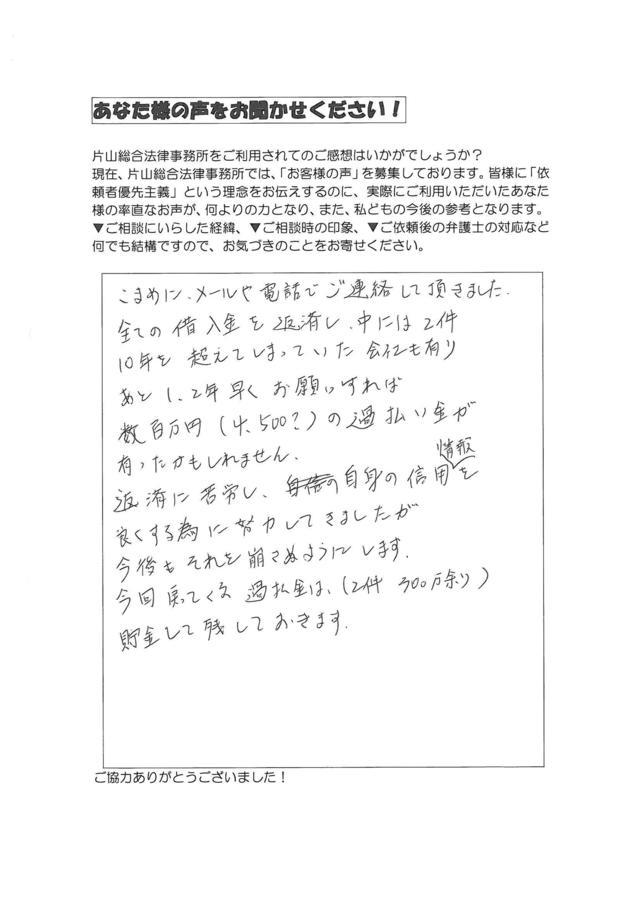 あなた様の声をお聞かせください！
片山総合法律事務所をご利用されてのご感想はいかがでしょうか？
現在、片山総合法律事務所では、「お客様の声」を募集しております。皆様に「依
頼者優先主義」という理念をお伝えするのに、実際にご利用いただいたあなた
様の率直なお声が、何よりの力となり、また、私どもの今後の参考となります。
▼ご相談にいらした経緯、▼ご相談時の印象、▼ご依頼後の弁護士の対応など
何でも結構ですので、お気づきのことをお寄せください。
こまめに、メールや電話でご連絡して頂きました.
全ての借入金を返済し、中には2件
10年を超えてしまっていた会社も有り
あと1、2年早くお願いすれば
数百万円(4、500?)の過払い金が
有ったかもしれません.
返済に苦労し、自身の信用情報を
良くする為に努力してきましたが
今後もそれを崩さぬようにします.
今回戻ってくる過払金は、(2件 300万余り)
貯金して残しておきます.
ご協力ありがとうございました！